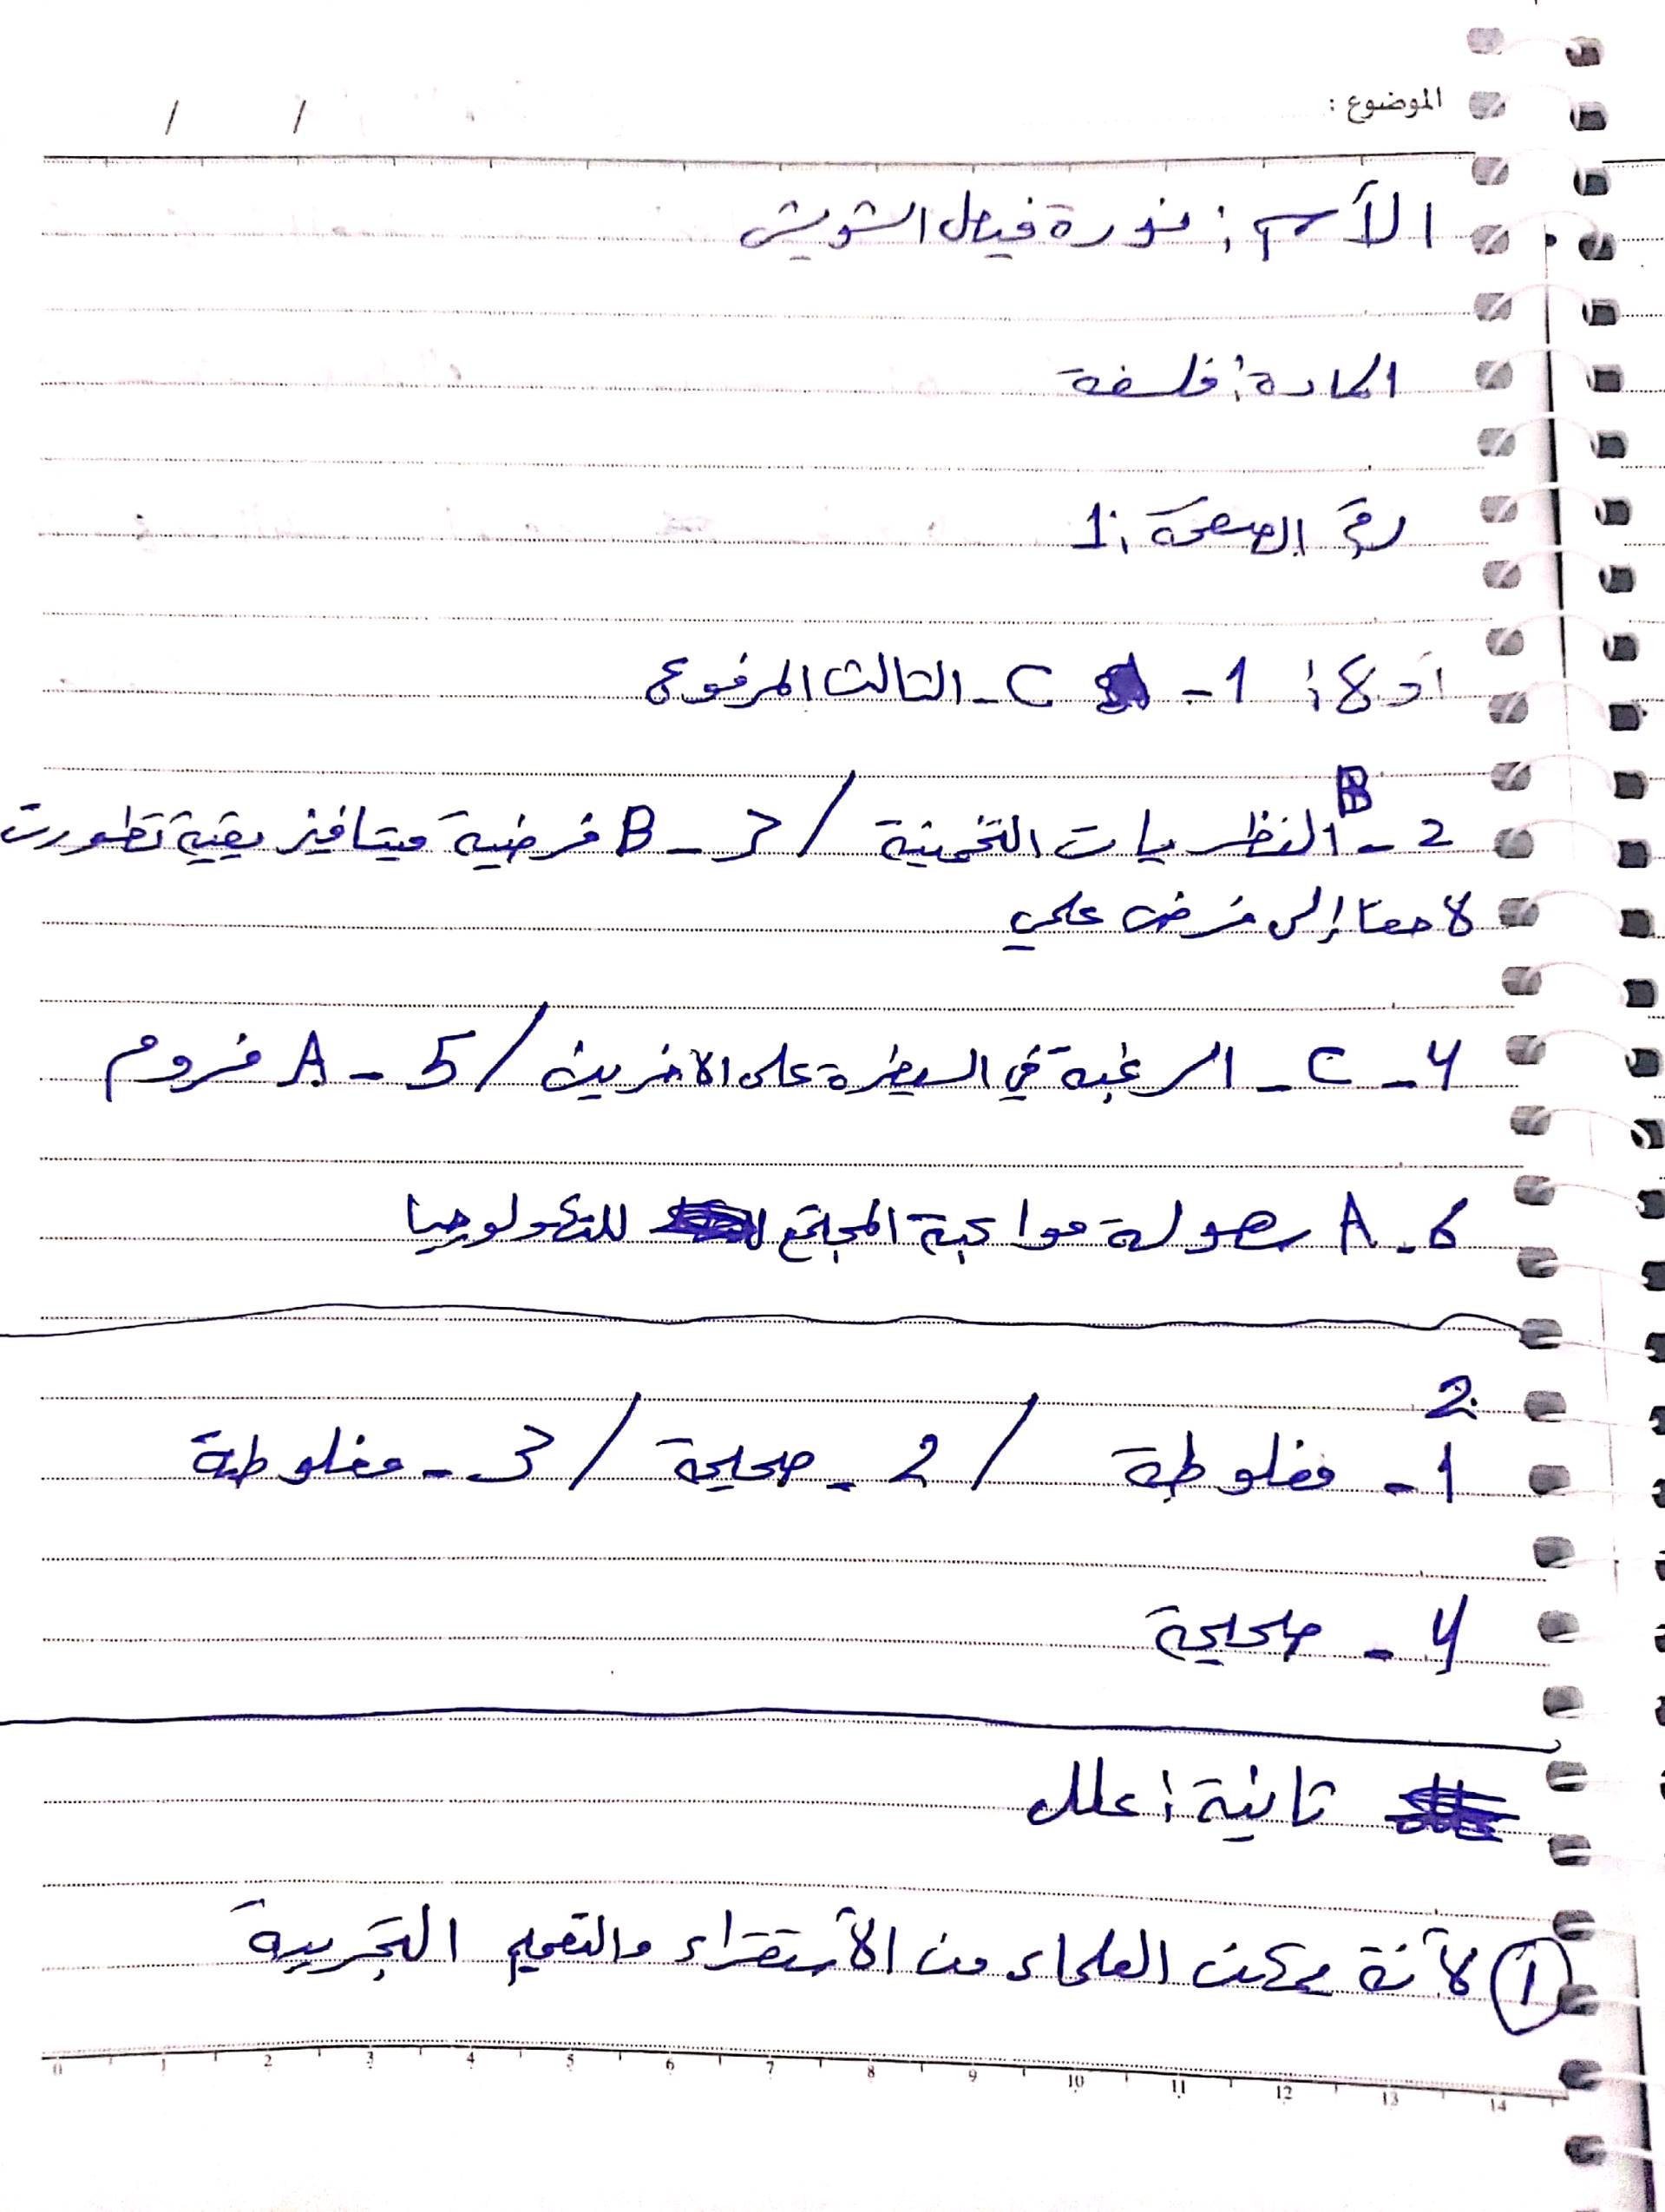 الموضوع :
/ /
الأسم : نورة فيصل الشويش
المادة : فلسفة
رقم الصفحة : 1
أولاً : 1 - C - الثالث المرفوع
2 - B النظريات التخمينية / 3 - B فرضية ميتافيزيقية تطورت
لاحقاً إلى فرض علمي
4 - C - الرغبة في السيطرة على الاخرين / 5 - A فروم
6 - A سهولة مواكبة المجتمع للتكنولوجيا
2
1 - مغلوطة / 2 - صحيحة / 3 - مغلوطة
4 - صحيحة
ثانية : علل
1 لأنة يمكن العلماء من الأستقراء والتعميم التجريبة
0 1 2 3 4 5 6 7 8 9 10 11 12 13 14